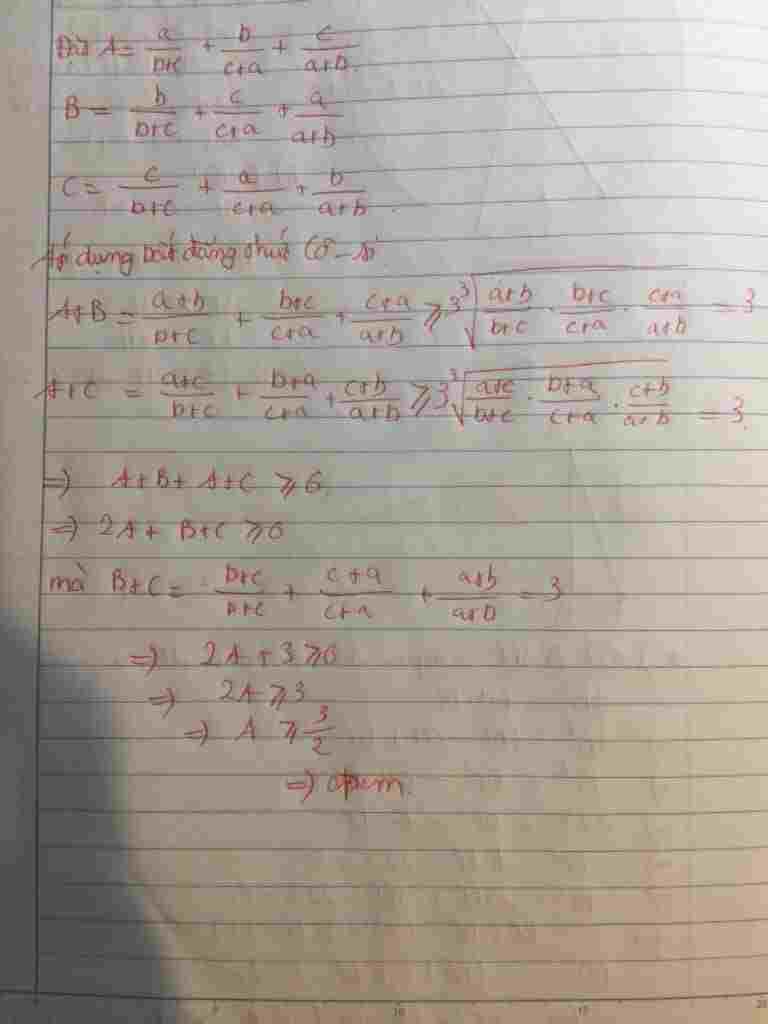 Đặt A = a/(b+c) + b/(c+a) + c/(a+b).
B = b/(b+c) + c/(c+a) + a/(a+b)
C = c/(b+c) + a/(c+a) + b/(a+b).
Áp dụng bất đẳng thức Cô-si
A+B = (a+b)/(b+c) + (b+c)/(c+a) + (c+a)/(a+b) ⩾ 3∛((a+b)/(b+c) · (b+c)/(c+a) · (c+a)/(a+b)) = 3
A+C = (a+c)/(b+c) + (b+a)/(c+a) + (c+b)/(a+b) ⩾ 3∛((a+c)/(b+c) · (b+a)/(c+a) · (c+b)/(a+b)) = 3.
=> A+B+A+C ⩾ 6
=> 2A + B+C ⩾ 6
mà B+C = (b+c)/(b+c) + (c+a)/(c+a) + (a+b)/(a+b) = 3
=> 2A + 3 ⩾ 6
=> 2A ⩾ 3
=> A ⩾ 3/2
=> đpcm.
9 10 15 20